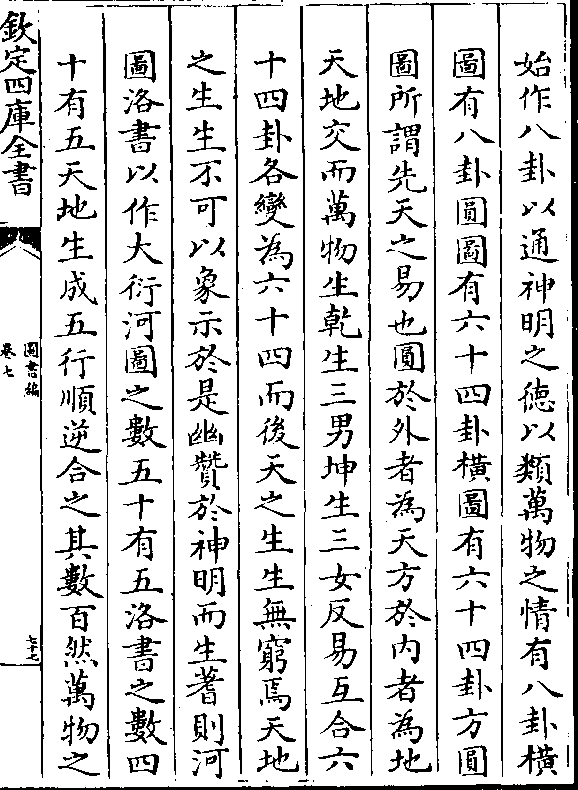 始作八卦以通神明之德以類萬物之情有八卦橫
圖有八卦圓圖有六十四卦橫圖有六十四卦方圓
圖所謂先天之易也圓於外者為天方於内者為地
天地交而萬物生乾生三男坤生三女反易互合六
十四卦各變為六十四而後天之生生無窮焉天地
之生生不可以象示於是幽贊於神明而生蓍則河
圖洛書以作大衍河圖之數五十有五洛書之數四
十有五天地生成五行順逆合之其數百然萬物之
欽定四庫全書
圖書編
卷七
七十七